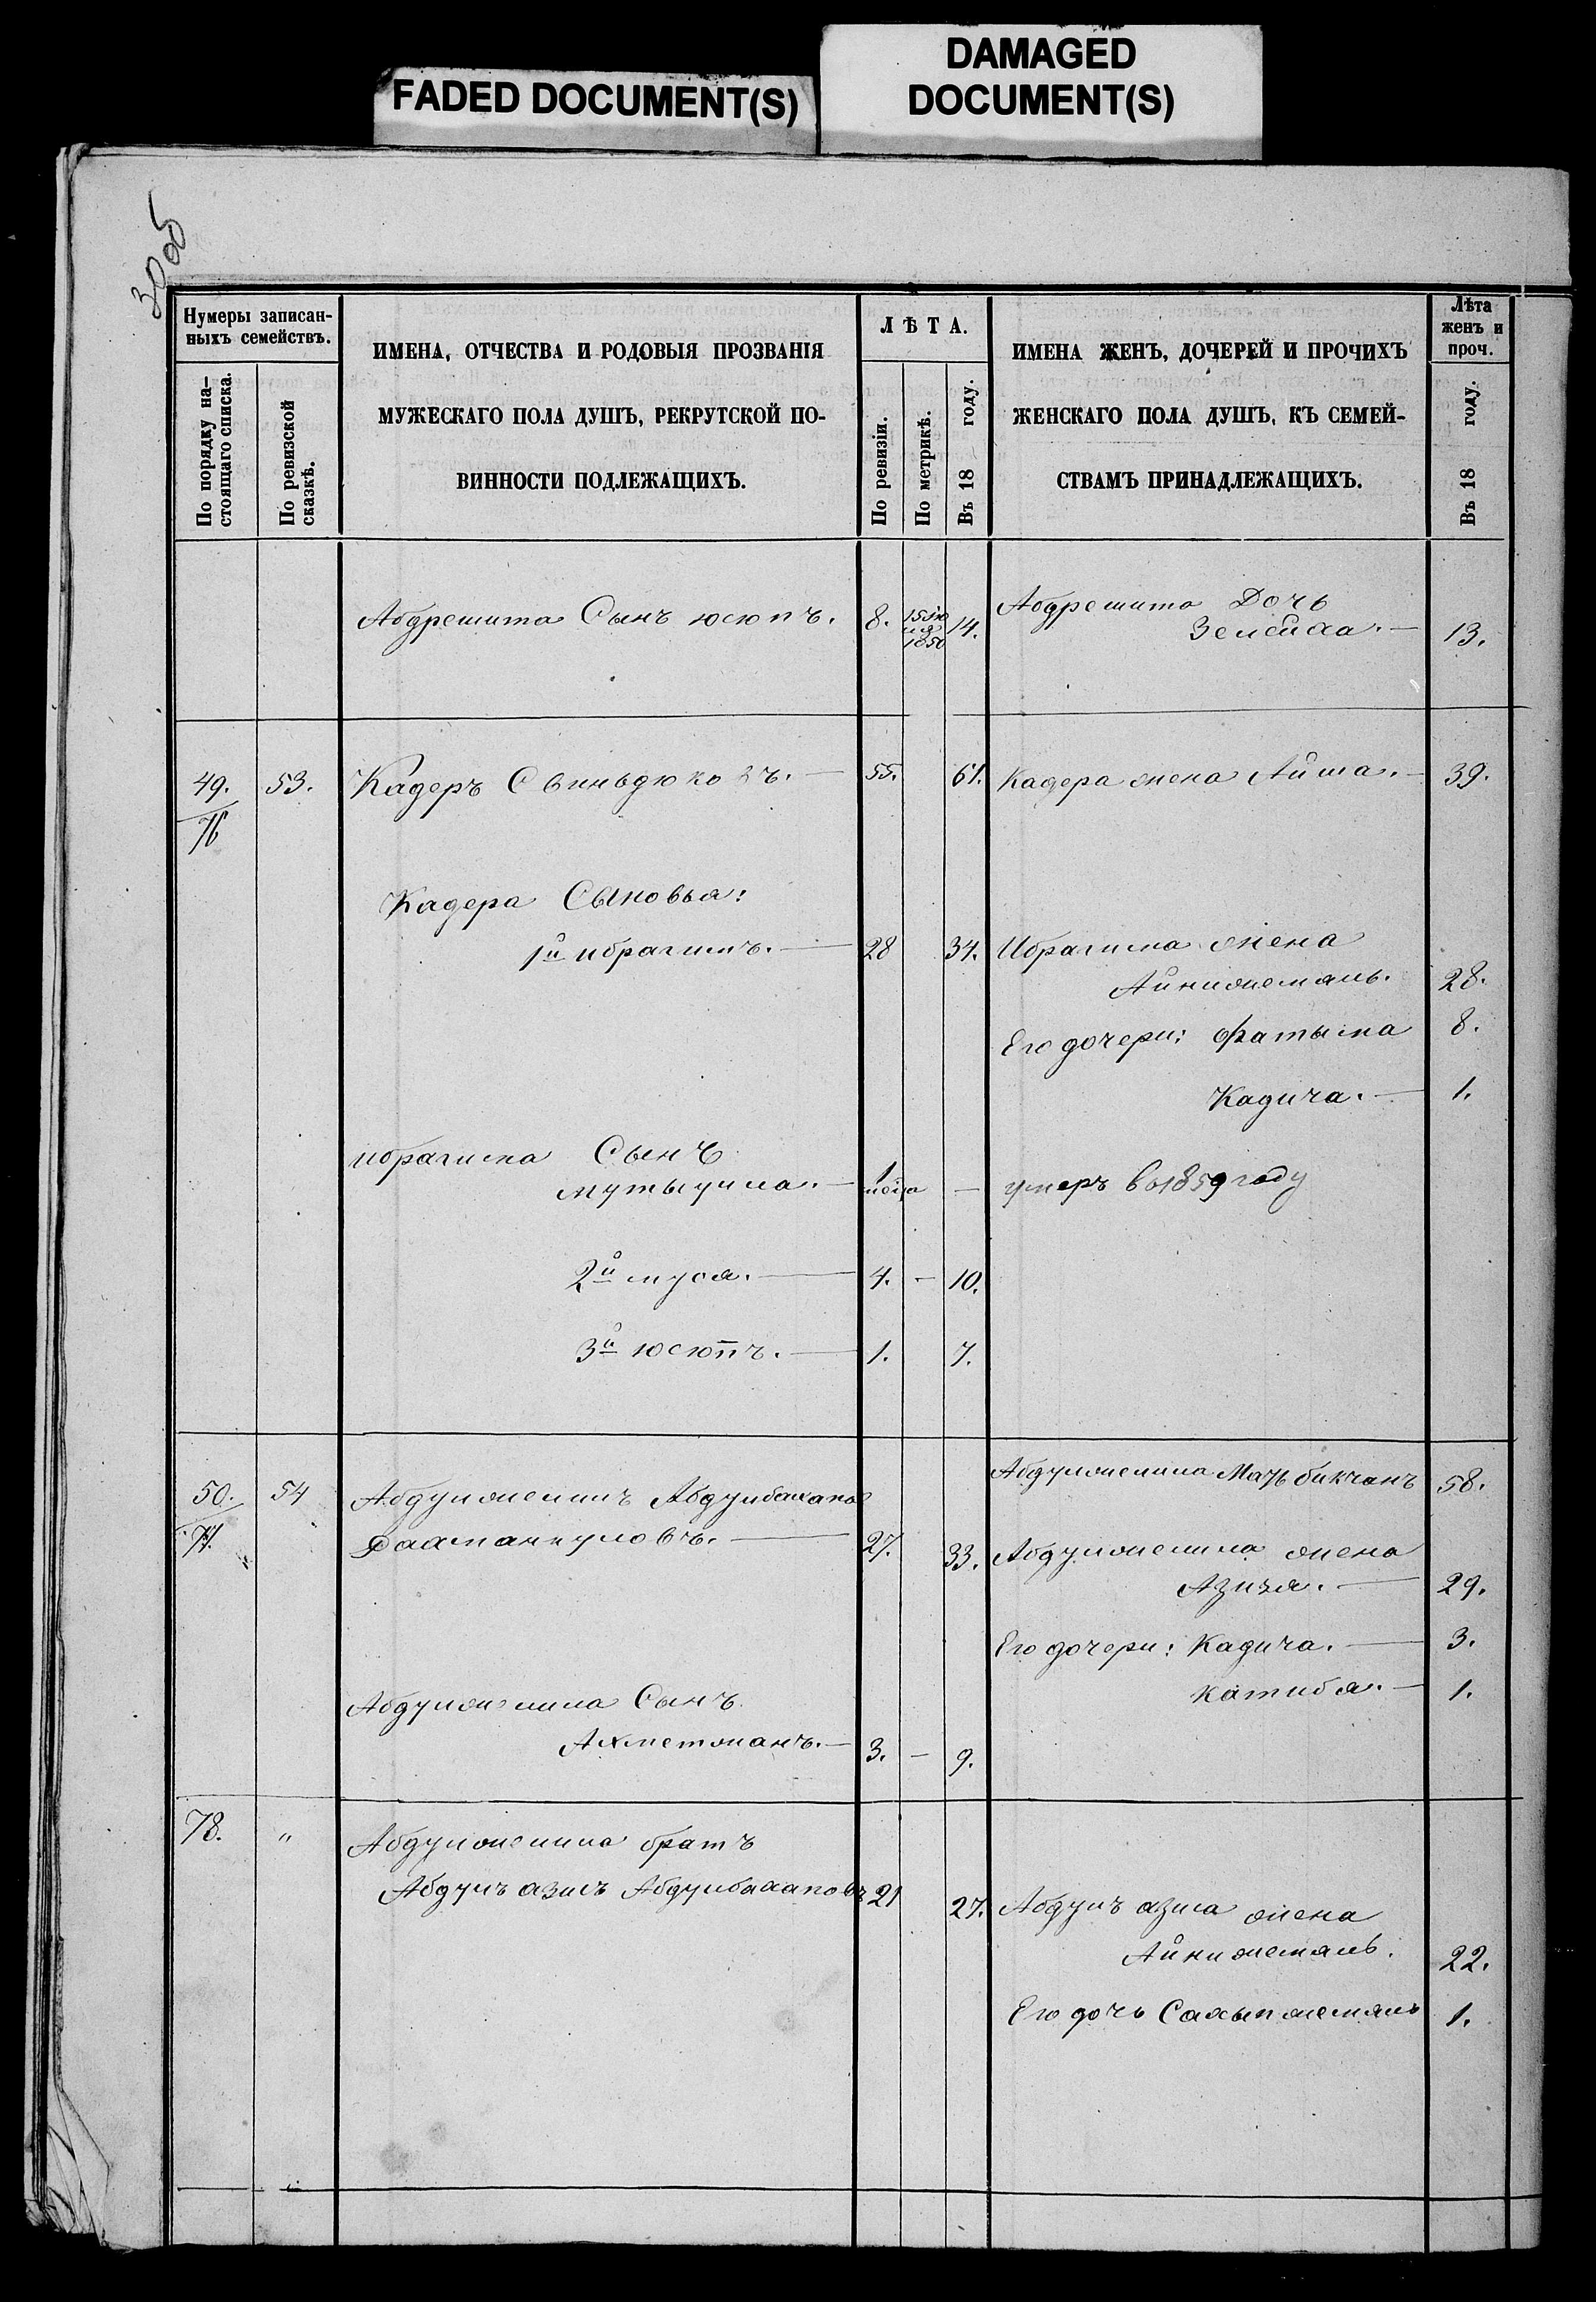 FADED DOCUMENT(S)
DAMAGED
DOCUMENT(S)
30 об
Нумеры записан-
ныхъ семействъ.
По порядку на-
стоящаго списка.
По ревизской
сказкѣ.
ИМЕНА, ОТЧЕСТВА И РОДОВЫЯ ПРОЗВАНІЯ
МУЖЕСКАГО ПОЛА ДУШЪ, РЕКРУТСКОЙ ПО-
ВИННОСТИ ПОДЛЕЖАЩИХЪ.
ЛѢТА.
По ревизіи.
По метрикѣ.
Въ 18 году.
ИМЕНА ЖЕНЪ, ДОЧЕРЕЙ И ПРОЧИХЪ
ЖЕНСКАГО ПОЛА ДУШЪ, КЪ СЕМЕЙ-
СТВАМЪ ПРИНАДЛЕЖАЩИХЪ.
Лѣта
женъ и
проч.
Въ 18 году.
Абдрешита Сынъ юсюпъ. 8. 1850 14.
Абдрешита Дочь
Зелейха. — 13.
49. 53. Кадеръ — 55. 61. Кадера жена Айша. — 39.
76
Кадера Сыновья:
1й ибрагимъ. — 28 34. Ибрагима жена
Айнижемаль. 28.
Его дочери: Фатыма 8.
Кадича. — 1.
ибрагима Сынъ
мутыгула. — 1 — умеръ в 1859 году
2й муся. — 4. — 10.
3й юсюпъ. — 1. 7.
50. 54 Абдулжелилъ Абдулвахапов
77. — 27. 33.
Абдулжелила Мать бикчанъ 58.
Абдулжелила жена
Азиза. — 29.
Его дочери: Кадича. — 3.
Катиба. — 1.
Абдулжелила Сынъ
Ахметжанъ. — 3. — 9.
78. " Абдулжелила братъ
Абдулъ азисъ Абдулвахаповъ 21 27. Абдулъ азиса жена
Айнижемаль. 22.
Его дочь Сахыпжемаль 1.